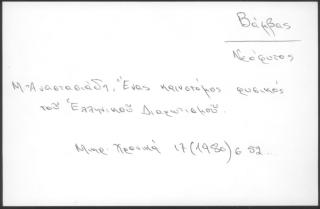 Βάμβας
Νεόφυτος
Μ. Αναστασιάδη, Ένας καινοτόμος φυσικός
τοῦ Ἑλληνικοῦ Διαφωτισμοῦ.
Μικρ. Χρονικά 17 (1980) σ 52..